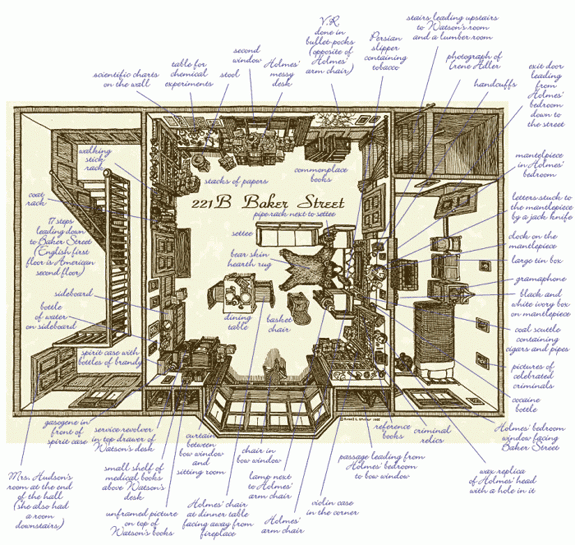 scientific charts
on the wall
table for
chemical
experiments
stool
second
window
Holmes'
messy
desk
V.R.
done in
bullet-pocks
(opposite of
Holmes'
arm chair)
Persian
slipper
containing
tobacco
stairs leading upstairs
to Watson's room
and a lumber room
photograph of
Irene Adler
handcuffs
exit door
leading
from
Holmes'
bedroom
down to
the street
walking
stick
rack
stacks of papers
commonplace
books
mantelpiece
in Holmes'
bedroom
coat
rack
221B Baker Street
pipe rack next to settee
letters stuck to
the mantelpiece
by a jack knife
17 steps
leading down
to Baker Street
(English first
floor is American
second floor)
settee
clock on the
mantelpiece
bear skin
hearth rug
large tin box
gramaphone
sideboard
black and
white ivory box
on mantelpiece
bottle
of water
on sideboard
dining
table
basket
chair
coal scuttle
containing
cigars and pipes
spirit case with
bottles of brandy
pictures of
celebrated
criminals
cocaine
bottle
gasogene in
front of
spirit case
service revolver
in top drawer of
Watson's desk
curtain
between
bow window
and
sitting room
chair in
bow window
reference
books
criminal
relics
Holmes' bedroom
window facing
Baker Street
Mrs. Hudson's
room at the end
of the hall
(she also had
a room
downstairs)
small shelf of
medical books
above Watson's
desk
lamp next
to Holmes'
arm chair
passage leading from
Holmes' bedroom
to bow window
wax replica
of Holmes' head
with a hole in it
unframed picture
on top of
Watson's books
Holmes' chair
at dinner table
facing away from
fireplace
Holmes'
arm chair
violin case
in the corner